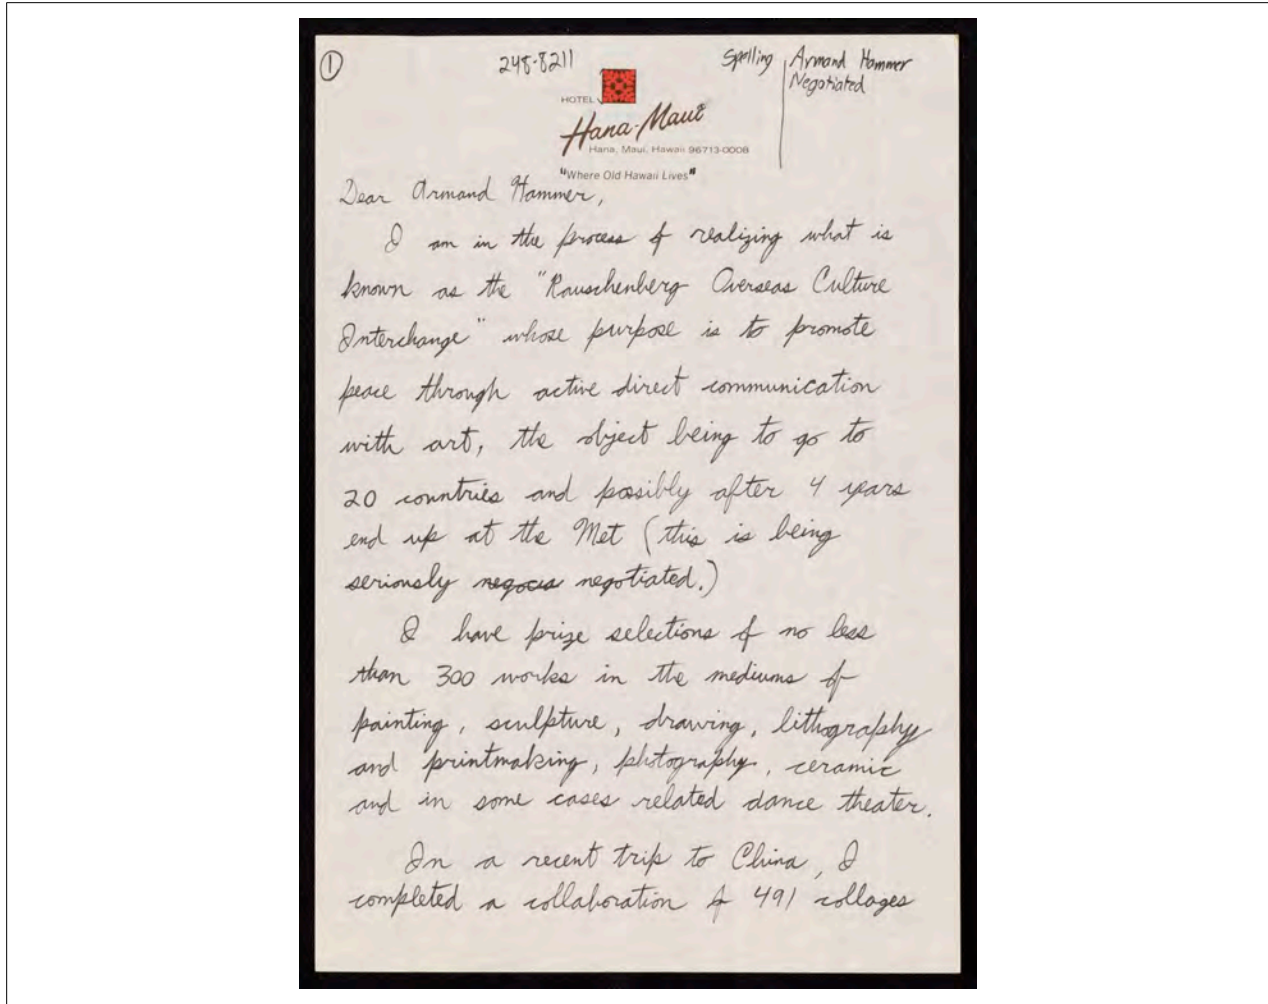 ①
248-8211
Spelling | Armand Hammer
Negotiated
HOTEL
Hana-Maui
Hana, Maui, Hawaii 96713-0008
"Where Old Hawaii Lives"
Dear Armand Hammer,
I am in the process of realizing what is
known as the "Rauschenberg Overseas Culture
Interchange" whose purpose is to promote
peace through active direct communication
with art, the object being to go to
20 countries and possibly after 4 years
end up at the Met (this is being
seriously negocia negotiated.)
I have prize selections of no less
than 300 works in the mediums of
painting, sculpture, drawing, lithography
and printmaking, photography, ceramic
and in some cases related dance theater.
In a recent trip to China, I
completed a collaboration of 491 collages